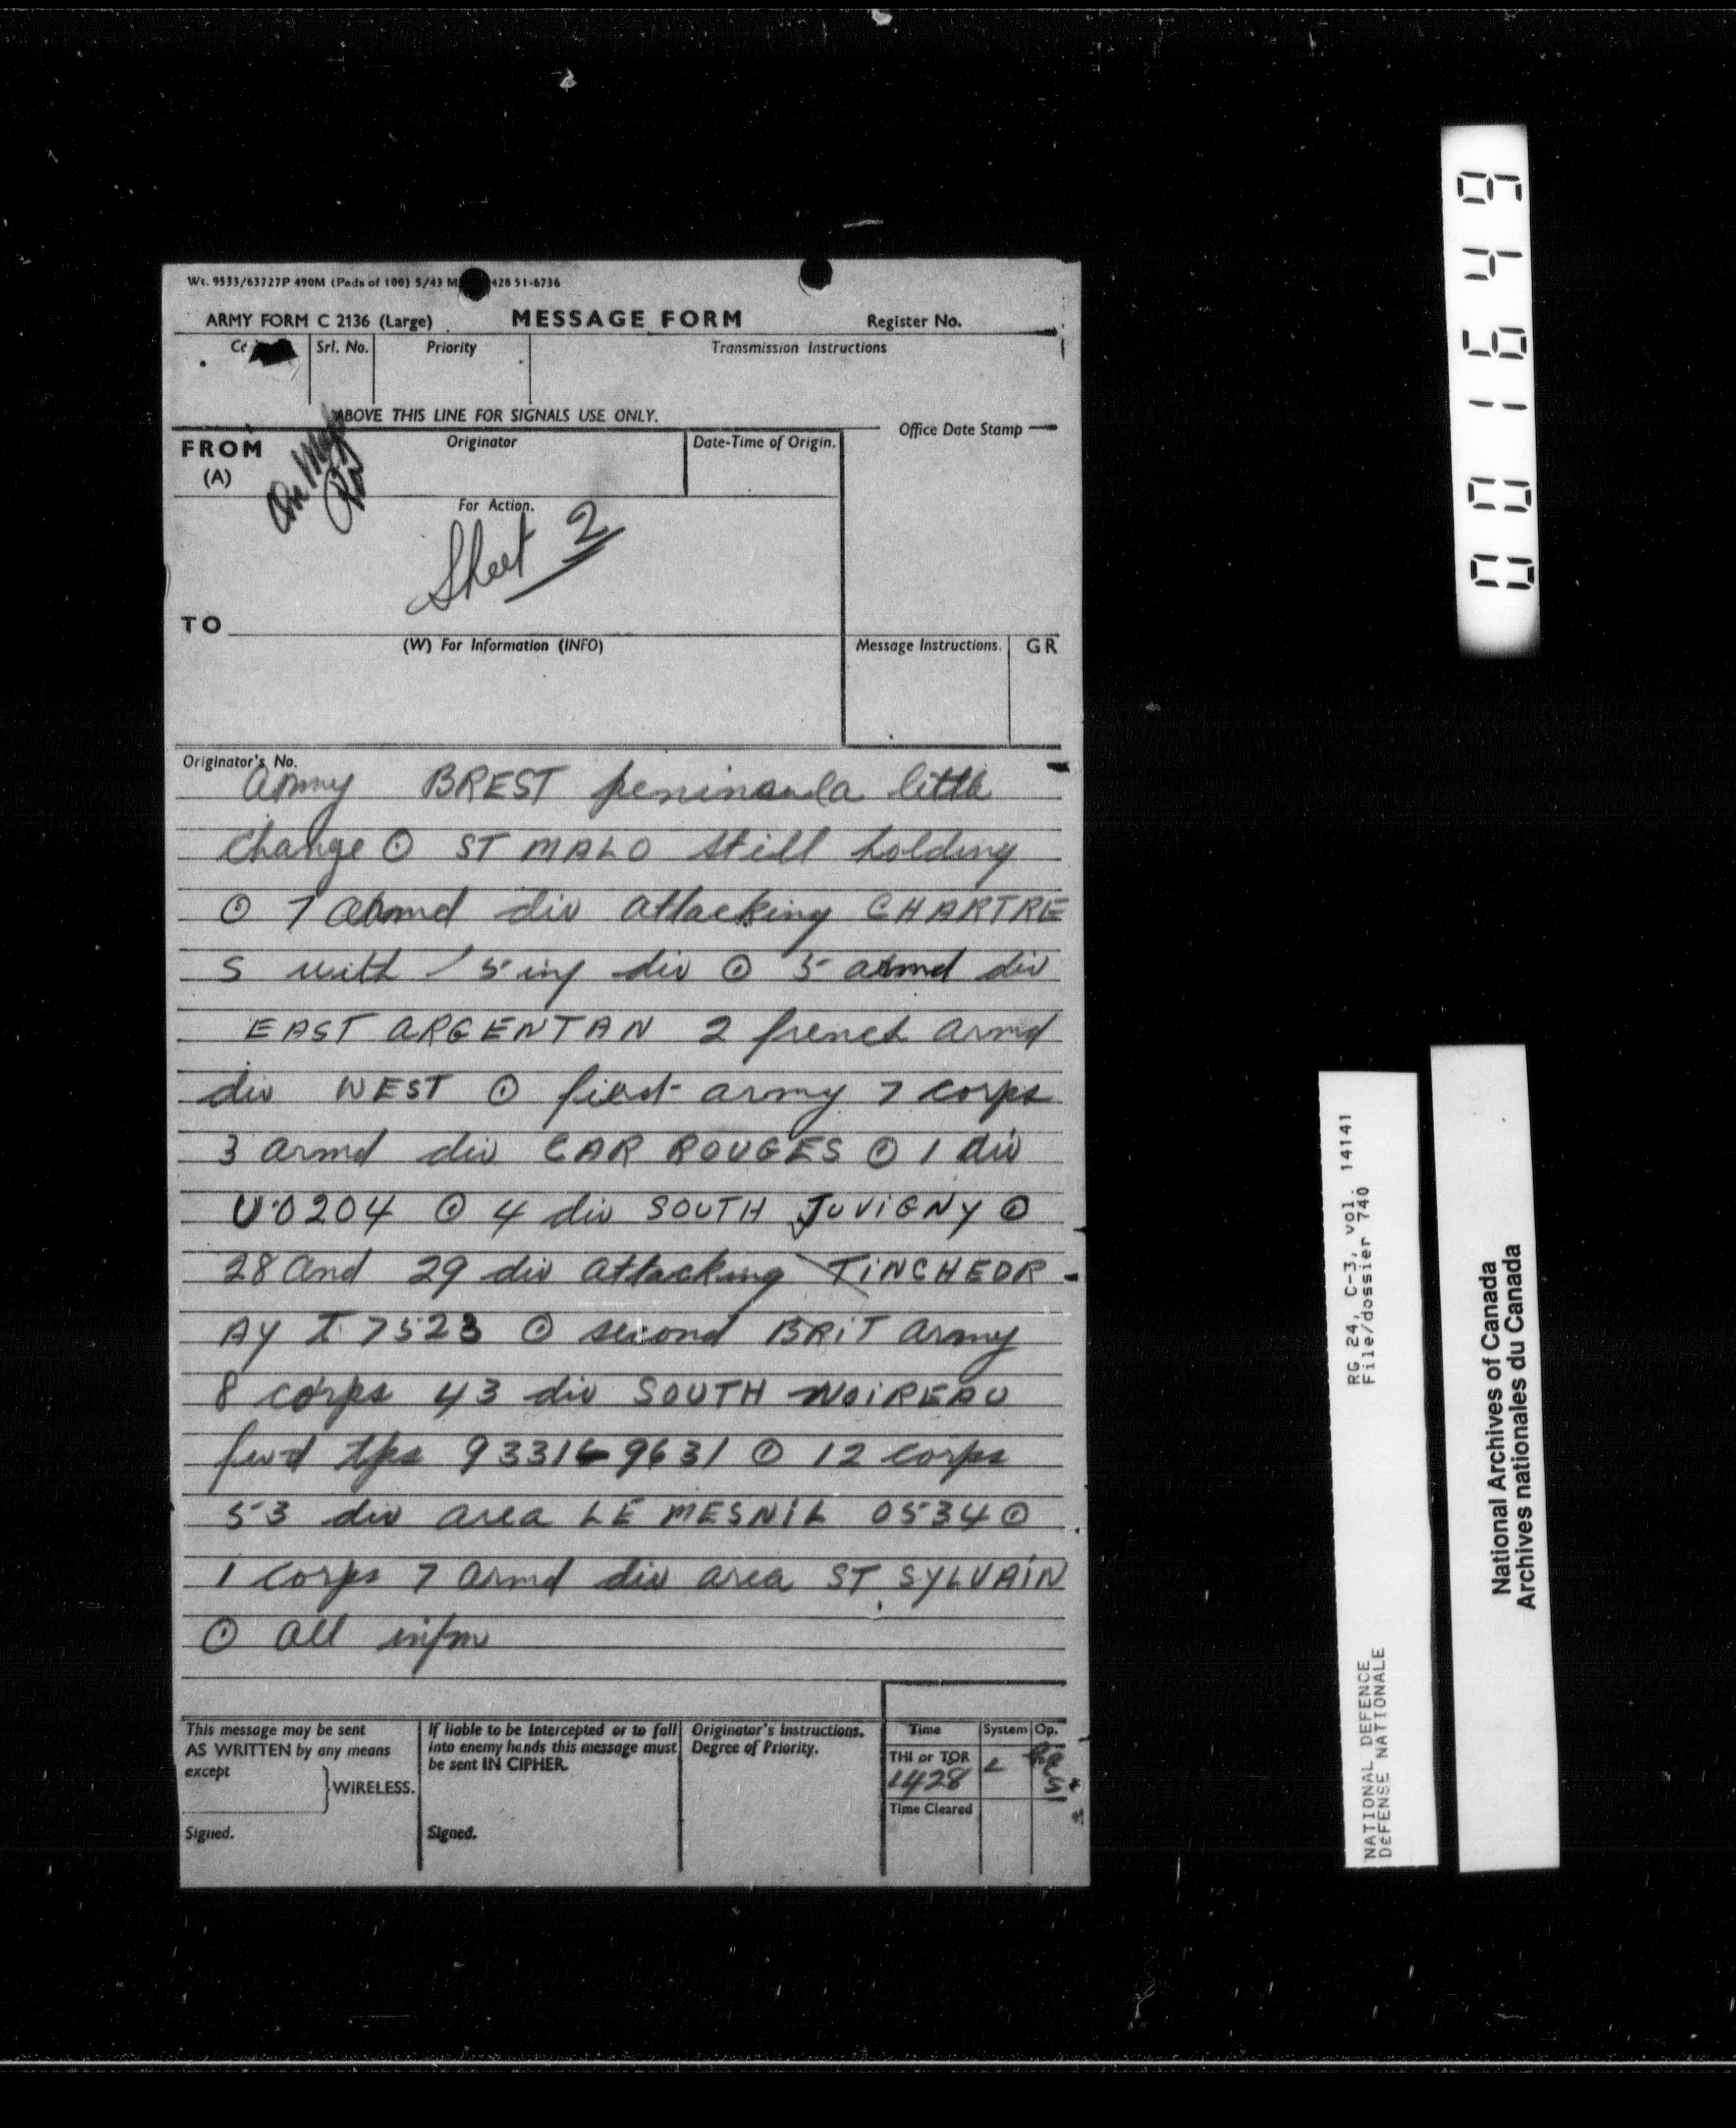 Wt. 9533/63727P 490M (Pads of 100) 5/43 M 428 51-6736
ARMY FORM C 2136 (Large) MESSAGE FORM Register No.
Srl. No. Priority Transmission Instructions
ABOVE THIS LINE FOR SIGNALS USE ONLY.
FROM (A) Originator Date-Time of Origin. Office Date Stamp
For Action.
Sheet 2
TO
(W) For Information (INFO) Message Instructions. GR
Originator's No.
Army BREST peninsula little
change ⊙ ST MALO still holding
⊙ 7 armd div attacking CHARTRE
S with 5 inf div ⊙ 5 armd div
EAST ARGENTAN 2 french armd
div WEST ⊙ first army 7 corps
3 armd div CAR ROUGES ⊙ 1 div
U 0204 ⊙ 4 div SOUTH JUVIGNY ⊙
28 and 29 div attacking TINCHEDR
AY T 7523 ⊙ second BRIT army
8 corps 43 div SOUTH NOIREAU
fwd tps 9331-9631 ⊙ 12 corps
53 div area LE MESNIL 0534 ⊙
1 corps 7 armd div area ST SYLVAIN
⊙ all infm
This message may be sent AS WRITTEN by any means except
WIRELESS.
Signed.
If liable to be intercepted or to fall into enemy hands this message must be sent IN CIPHER.
Signed.
Originator's Instructions. Degree of Priority.
Time System Op.
THI or TOR
1428 L
Time Cleared
001649
RG 24, C-3, vol. 14141
File/dossier 740
NATIONAL DEFENCE
DéFENSE NATIONALE
National Archives of Canada
Archives nationales du Canada